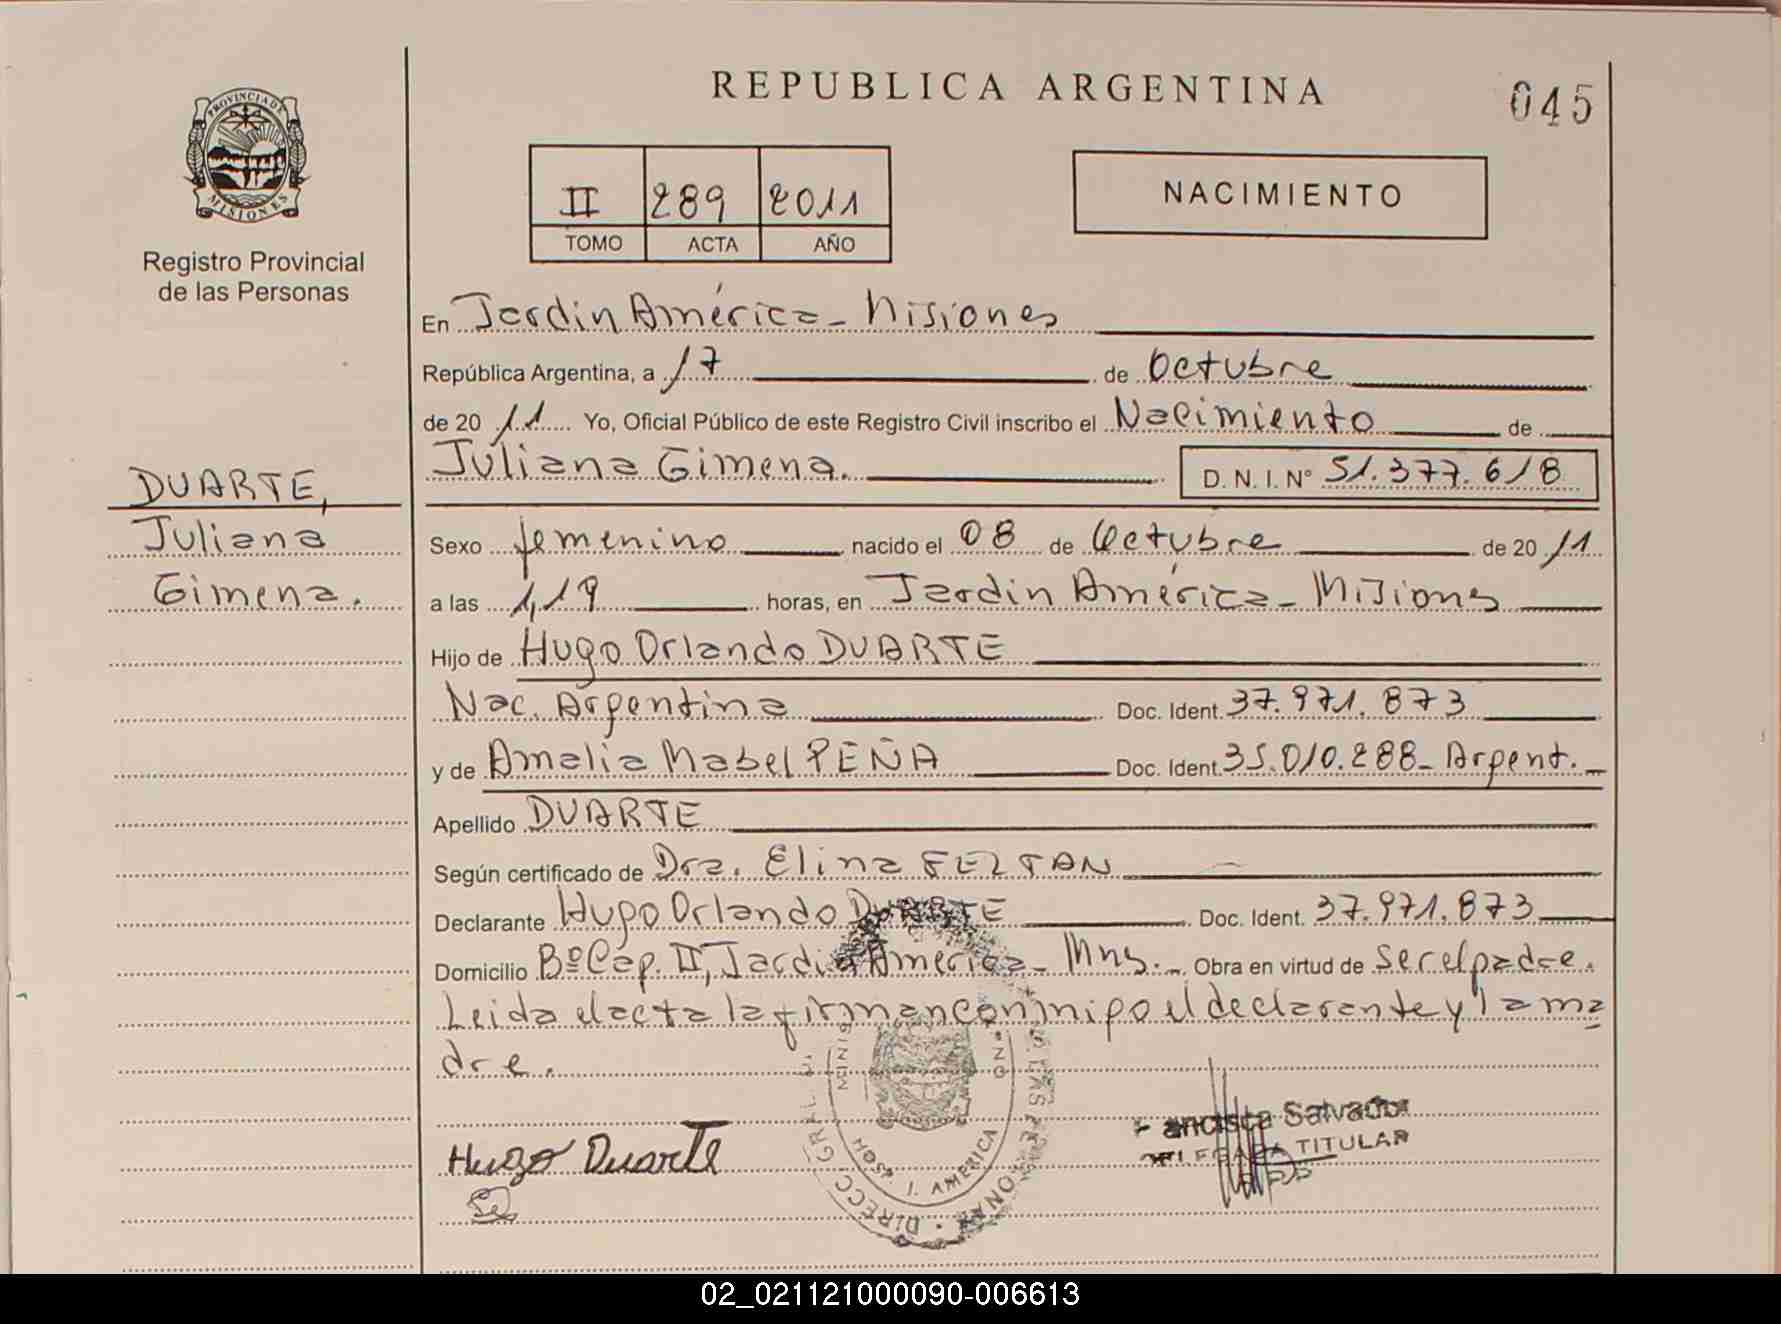 PROVINCIA DE
MISIONES
Registro Provincial
de las Personas
DUARTE,
Juliana
Gimena.
REPUBLICA ARGENTINA
045
II 289 2011
TOMO ACTA AÑO
NACIMIENTO
En Jardin América - Misiones
República Argentina, a 17 de Octubre
de 20 11 Yo, Oficial Público de este Registro Civil inscribo el Nacimiento de
Juliana Gimena. D. N. I. N° 51.377.618
Sexo femenino nacido el 08 de Octubre de 20 11
a las 1,19 horas, en Jardin América - Misiones
Hijo de Hugo Orlando DUARTE
Nac. Argentina Doc. Ident. 37.971.873
y de Amalia Mabel PEÑA Doc. Ident. 35.010.288 - Argent.
Apellido DUARTE
Según certificado de Dra. Elina
Declarante Hugo Orlando DUARTE Doc. Ident. 37.971.873
Domicilio Bº Cap. II, Jardin America - Mns. - Obra en virtud de ser el padre.
Leida el acta la firman conmigo el declarante y la ma
dre.
Hugo Duarte
Salvador
TITULAR
J. AMERICA
02_021121000090-006613